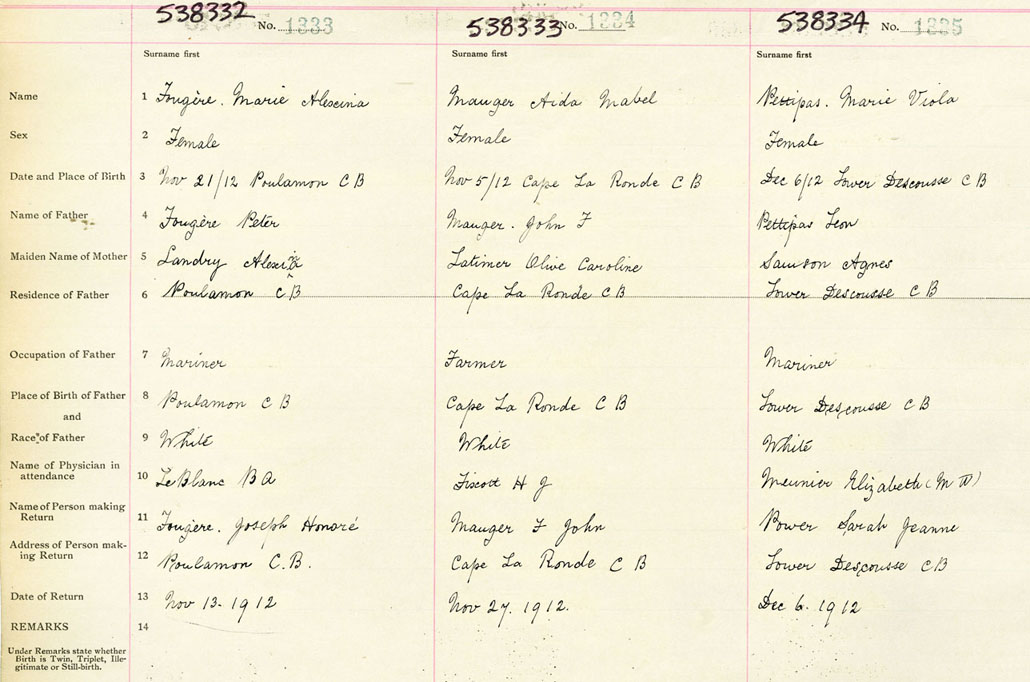 538332 No. 1333 538333 No. 1334 538334 No. 1335
Surname first Surname first Surname first
Name 1 Fougère. Marie Alescina Mauger Aida Mabel Pettipas. Marie Viola
Sex 2 Female Female Female
Date and Place of Birth 3 Nov 21/12 Poulamon C B Nov 5/12 Cape La Ronde C B Dec 6/12 Lower Descousse C B
Name of Father 4 Fougère Peter Mauger. John F Pettipas Leon
Maiden Name of Mother 5 Landry Latimer Olive Caroline Samson Agnes
Residence of Father 6 Poulamon C B Cape La Ronde C B Lower Descousse C B
Occupation of Father 7 Mariner Farmer Mariner
Place of Birth of Father 8 Poulamon C B Cape La Ronde C B Lower Descousse C B
and
Race of Father 9 White White White
Name of Physician in
attendance 10 LeBlanc B A H J Meunier Elizabeth (M W)
Name of Person making
Return 11 Fougere. Joseph Honoré Mauger F John Power Sarah Jeanne
Address of Person mak-
ing Return 12 Poulamon C.B. Cape La Ronde C B Lower Descousse C B
Date of Return 13 Nov 13. 1912 Nov 27. 1912. Dec 6. 1912
REMARKS 14
Under Remarks state whether
Birth is Twin, Triplet, Ille-
gitimate or Still-birth.